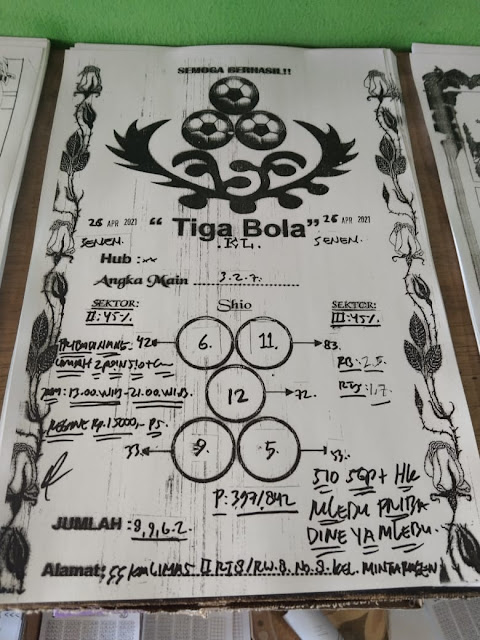 SEMOGA BERHASIL!!
26 APR 2021 "Tiga Bola" 26 APR 2021
SENEN. .KL. SENEN.
Hub :
Angka Main 3.2.7.
SEKTOR: Shio SEKTOR:
II: 45% III: 45%
42 6. 11. 83.
2 POIN 510 RB: 2.5.
12 72. RTJ: 1.7.
JAM: 13.00.WIB - 21.00.WIB.
Rp. 15000,- PS.
33. 9. 5. 33.
510 SGP + HK
P: 397/842 MLEBU PRIBA
JUMLAH : 9,9,6.2. DINE YA MLEBU.
Alamat: II RT 8/RW.8. No.9. KEL. MINTARAGEN